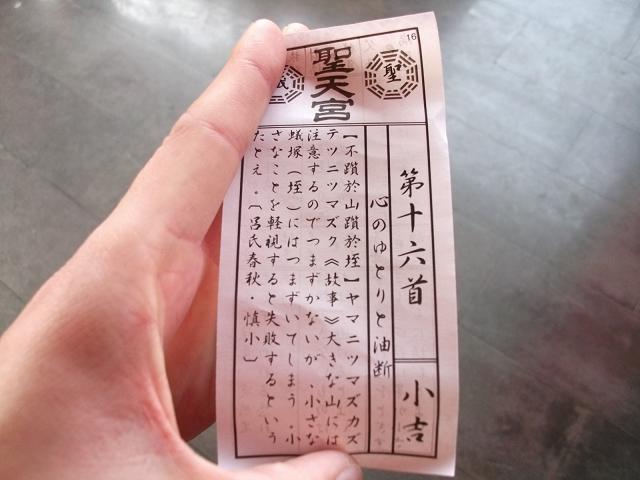 16
聖天宮
聖
第十六首
小吉
心のゆとりと油断
【不躓於山躓於垤】ヤマニツマズカズ
テツニツマズク《故事》大きな山には
注意するのでつまずかないが、小さな
蟻塚(垤)にはつまずいてしまう。小
さなことを軽視すると失敗するという
たとえ。〔呂氏春秋・慎小〕